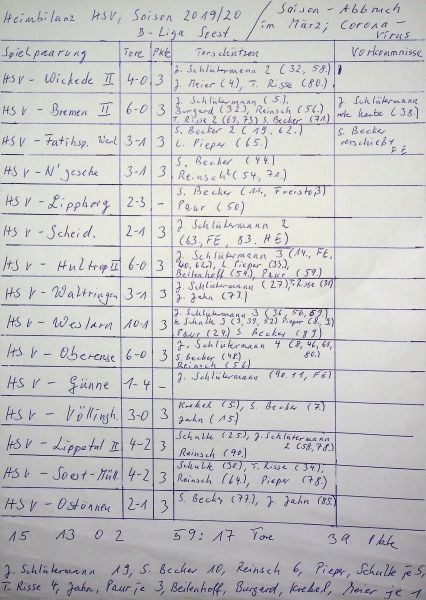 Heimbilanz HSV, Saison 2019/20 / Saison-Abbruch
B-Liga Soest / im März; Corona-Virus
Spielpaarung Tore Pkte Torschützen Vorkommnisse
HSV - Wickede II 4-0 3 J. Schlütermann 2 (32, 58.)
J. Meier (4), T. Risse (80.)
HSV - Bremen II 6-0 3 J. Schlütermann (5.), J. Schlütermann
Burgard (32), Reinsch (56.) rote Karte (38.)
T. Risse 2 (69, 73) S. Becker (71.)
HSV - Fatihsp. Werl 3-1 3 S. Becker 2 (19, 62.) S. Becker
L. Pieper (65.) verschießt FE
HSV - N'geseke 3-1 3 S. Becker (44.)
Reinsch 2 (54, 71.)
HSV - Lippborg 2-3 - S. Becker (11., Freistoß)
Paur (50)
HSV - Scheid. 2-1 3 J. Schlütermann 2
(63, FE, 83. HE)
HSV - Hultrop II 6-0 3 J. Schlütermann 3 (14., FE,
40, 62.), L. Pieper (35),
Beitenhoff (54.), Paur (59.)
HSV - Waltringen 3-1 3 J. Schlütermann (27.), T. Risse (31)
J. Jahn (73.)
HSV - Weslarn 10-1 3 J. Schlütermann 3 (36, 56, 69.)
K. Schulte 3 (3, 39, 52) Pieper (8, 3)
Paur (24) S. Becker (89)
HSV - Oberense 6-0 3 J. Schlütermann 4 (8, 46, 61, 80.)
S. Becker (48.)
Reinsch (56)
HSV - Günne 1-4 - J. Schlütermann (90.+1, FE)
HSV - Völlingh. 3-0 3 Krebel (5.), S. Becker (7.)
Jahn (15)
HSV - Lippetal II 4-2 3 Schulte (25.), J. Schlütermann
2 (58, 78.)
Reinsch (90.)
HSV - Soest-Müll. 4-2 3 Schulte (30.), T. Risse (34.),
Reinsch (64.), Pieper (78.)
HSV - Ostönnen 2-1 3 S. Becker (77.), J. Jahn (85.)
15 13 0 2 59:17 Tore 39 Pkte
J. Schlütermann 19, S. Becker 10, Reinsch 6, Pieper, Schulte je 5,
T. Risse 4, Jahn, Paur je 3, Beitenhoff, Burgard, Krebel, Meier je 1